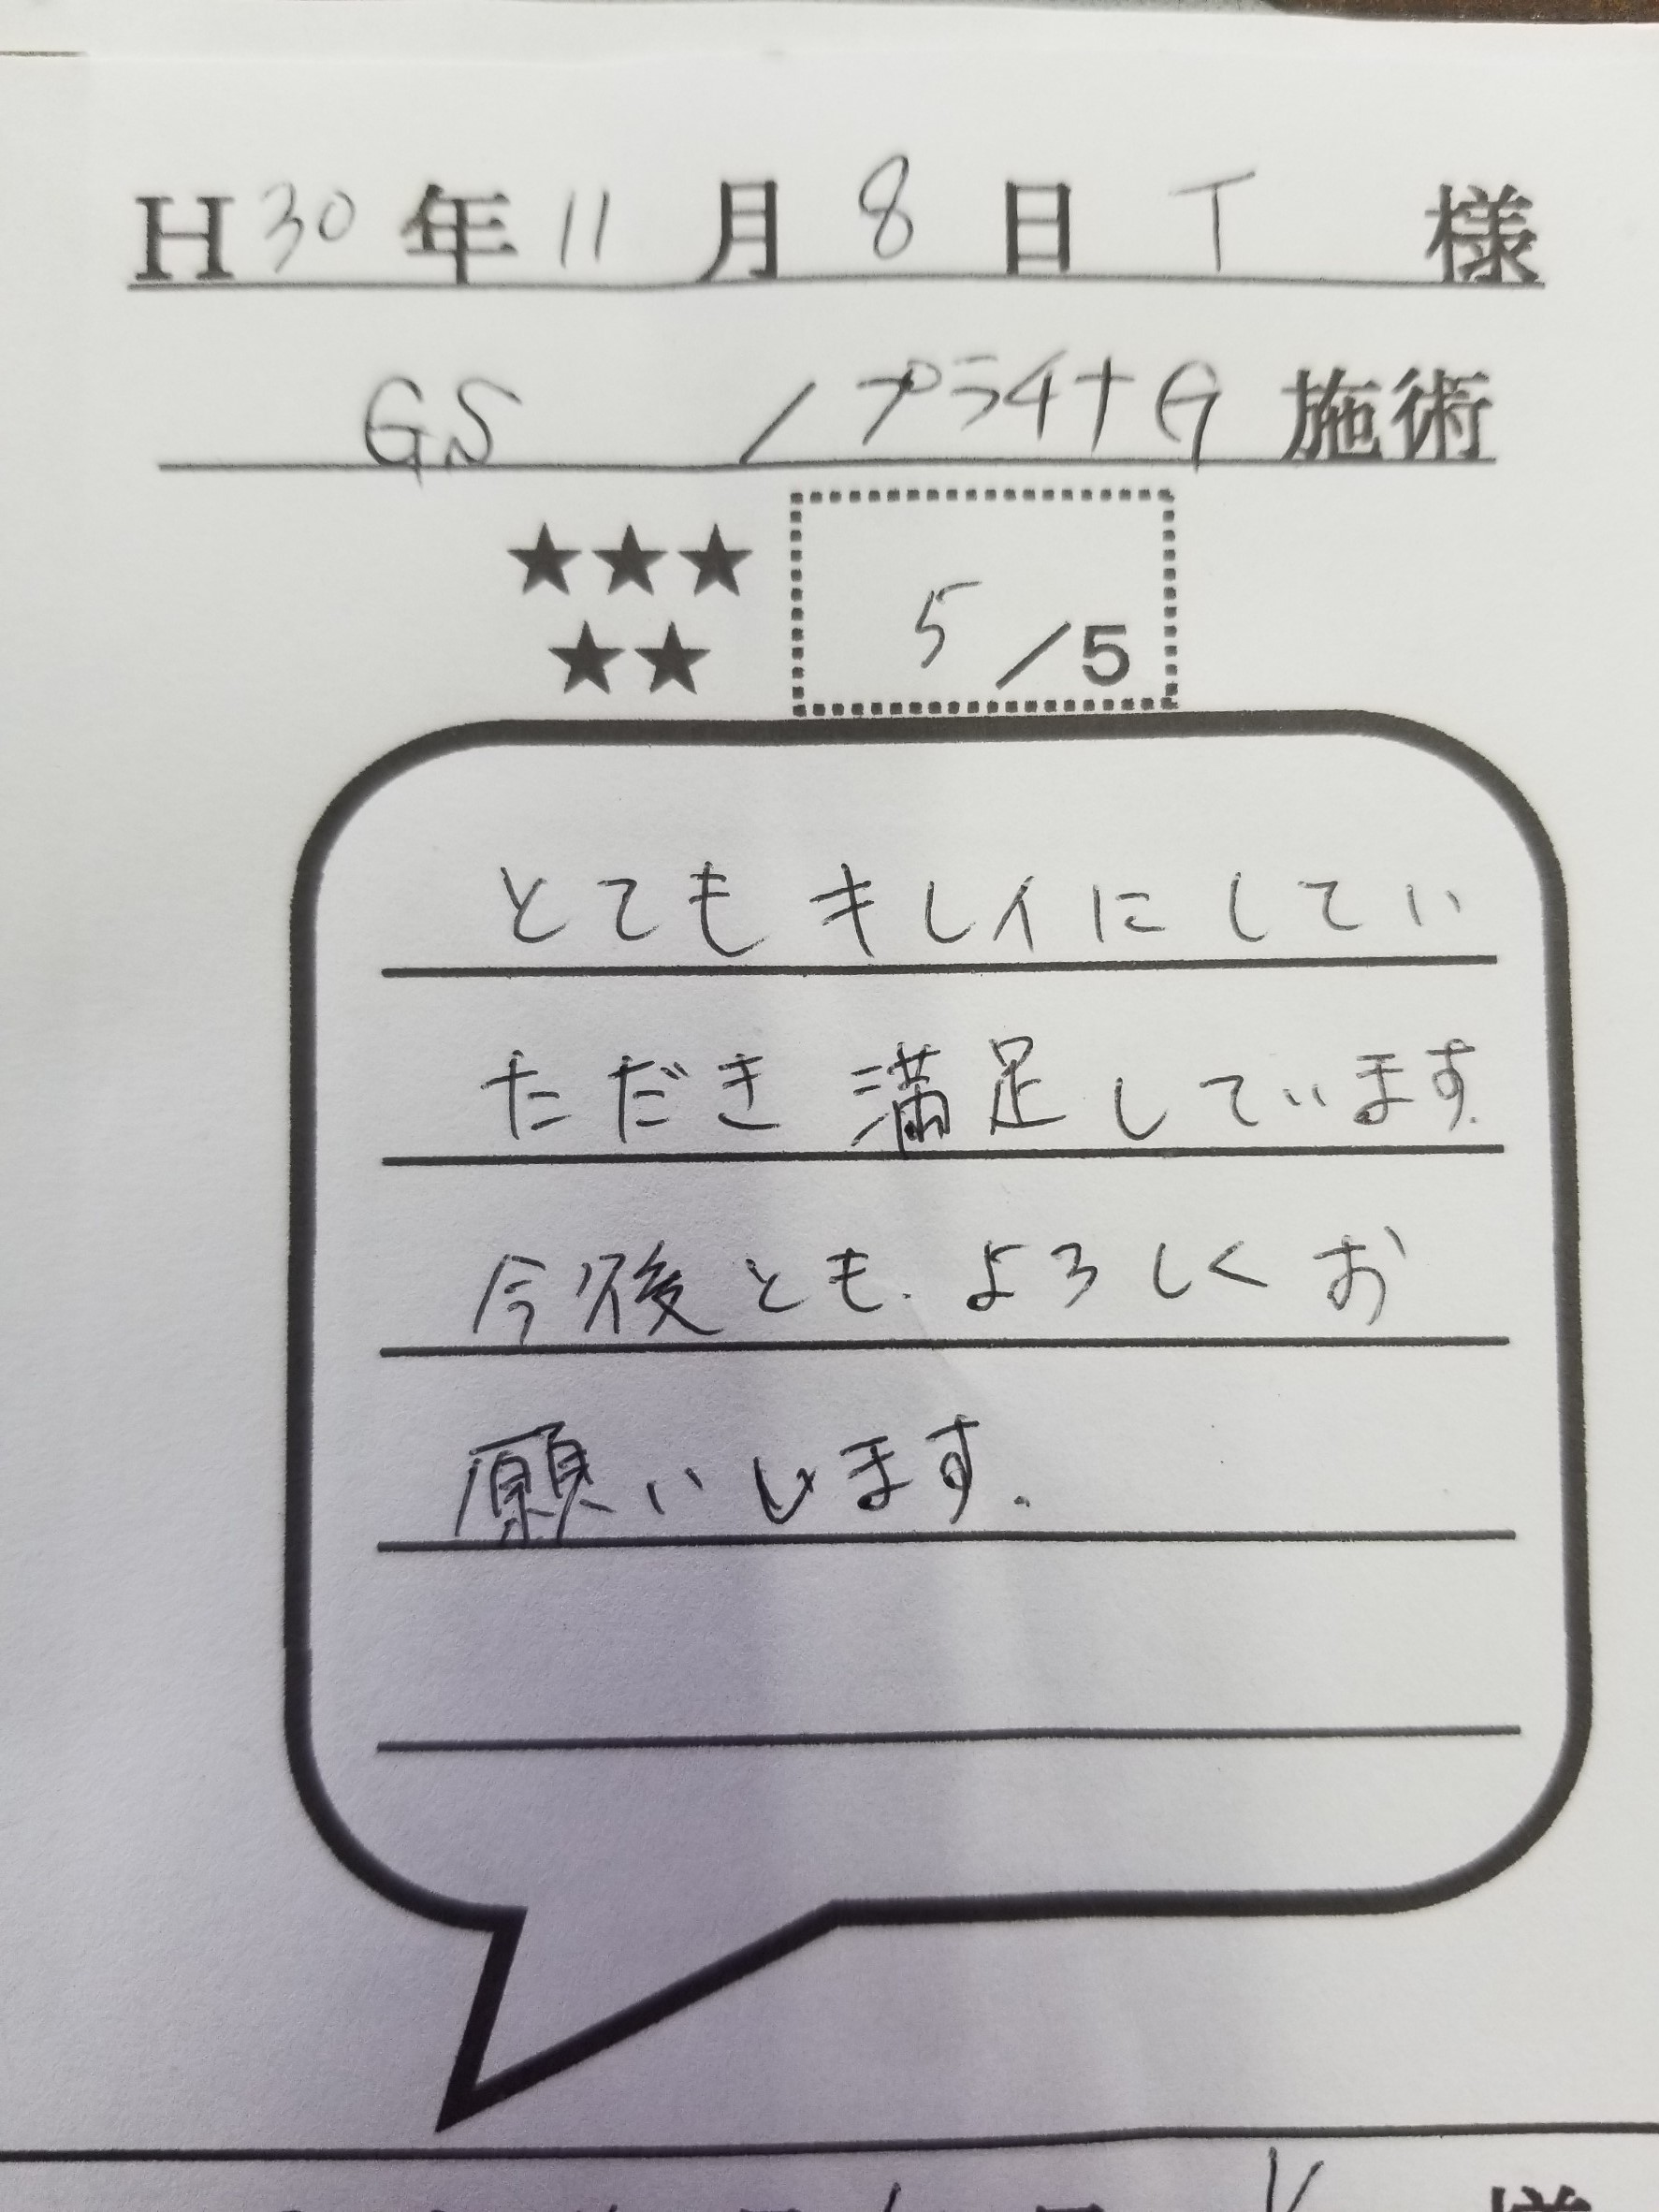 H30年11月8日 T 様
GS /プラチナG 施術
★★★
5/5
★★
とてもキレイにしてい
ただき満足しています.
今後とも.よろしくお
願いします.
K 様